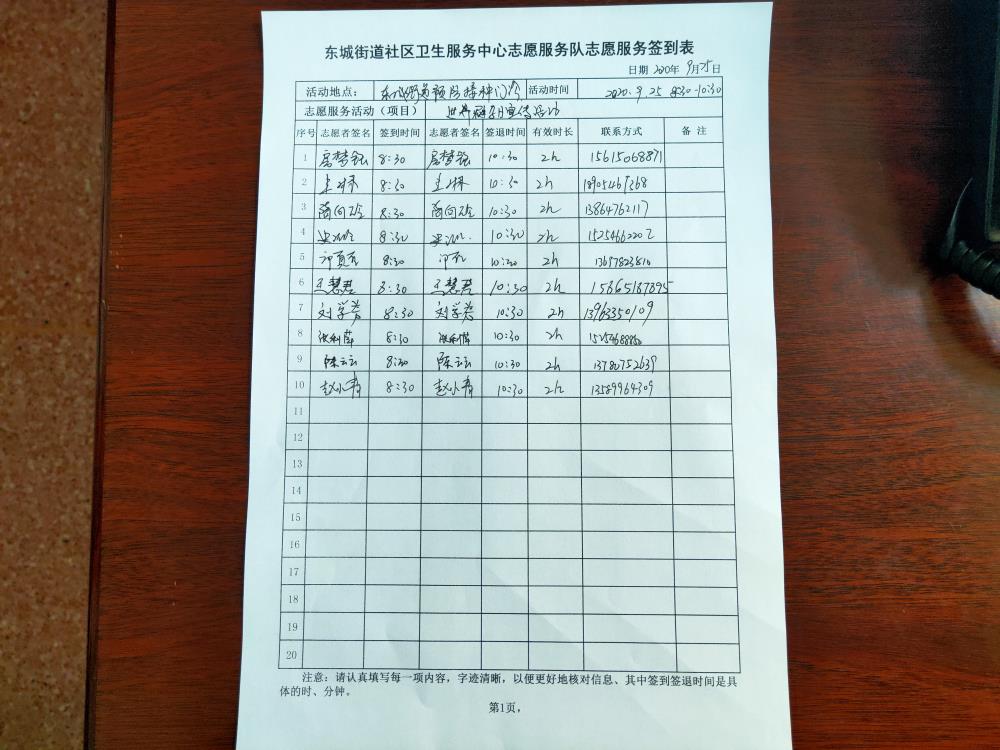 东城街道社区卫生服务中心志愿服务队志愿服务签到表
日期 2020年 9月25日
活动地点: 东城街道预防接种门诊 活动时间 2020.9.25 8:30-10:30
志愿服务活动（项目） 世界 宣传活动
序号 志愿者签名 签到时间 志愿者签名 签退时间 有效时长 联系方式 备 注
1 8:30 10:30 2h 15615068871
2 8:30 10:30 2h
3 8:30 10:30 2h 13864762117
4 8:30 10:30 2h 15254662202
5 8:30 10:30 2h
6 王慧君 8:30 王慧君 10:30 2h
7 刘学芳 8:30 刘学芳 10:30 2h 13963350109
8 张利萍 8:30 张利萍 10:30 2h
9 陈云云 8:30 陈云云 10:30 2h 13780752639
10 赵小青 8:30 赵小青 10:30 2h 13589964309
11
12
13
14
15
16
17
18
19
20
注意：请认真填写每一项内容，字迹清晰，以便更好地核对信息、其中签到签退时间是具
体的时、分钟。
第1页,